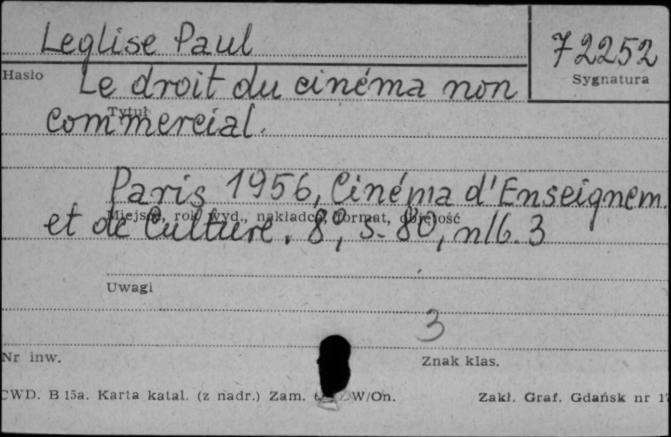 Leglise Paul
72252
Hasło
Sygnatura
Le droit du cinéma non
Tytuł
commercial.
Paris 1956, Cinéma d'Enseignem.
Miejsce, rok wyd., nakładca, format, objętość
et de Culture. 8°, s. 80, nlb. 3
Uwagi
3
Nr inw.
Znak klas.
CWD. B 15a. Karta katal. (z nadr.) Zam. W/On.
Zakł. Graf. Gdańsk nr